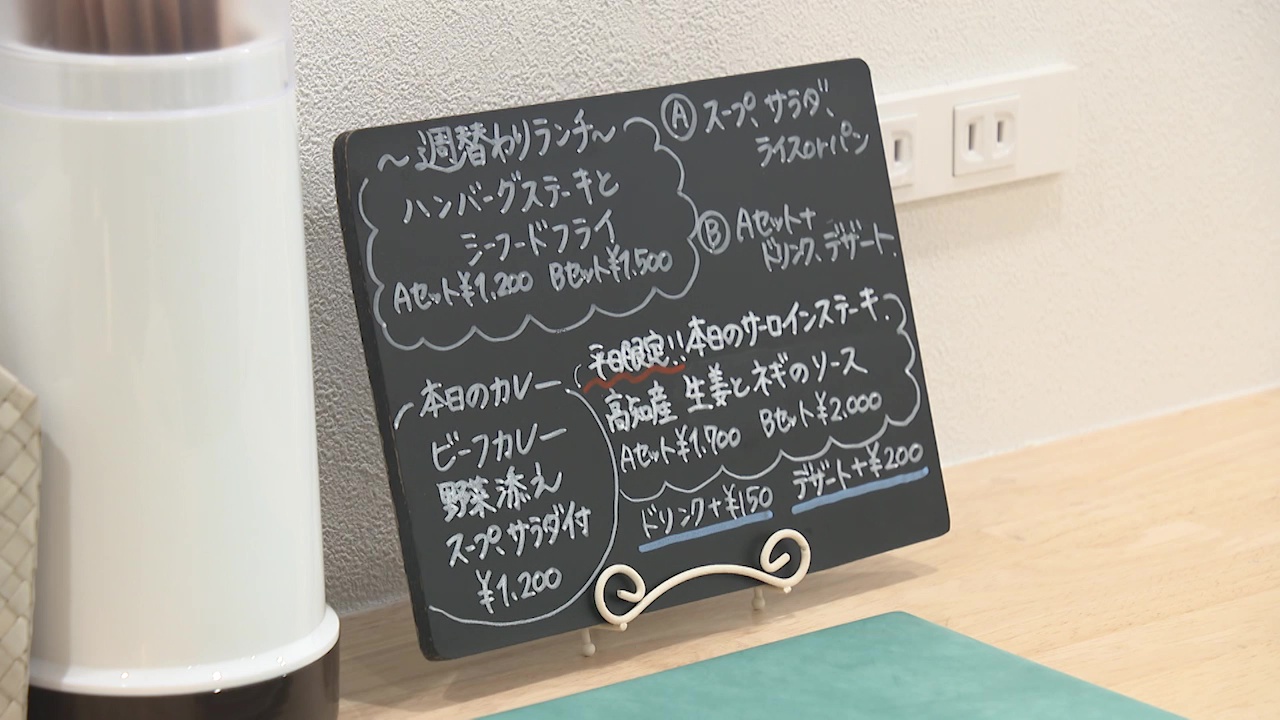 ～週替わりランチ～
ハンバーグステーキと
シーフードフライ
Aセット¥1,200 Bセット¥1,500
Ⓐスープ、サラダ、
ライスorパン
ⒷAセット+
ドリンク、デザート、
平日限定!!本日のサーロインステーキ、
高知産 生姜とネギのソース
Aセット¥1,700 Bセット¥2,000
本日のカレー
ビーフカレー
野菜添え
スープ、サラダ付
¥1,200
ドリンク+¥150 デザート+¥200